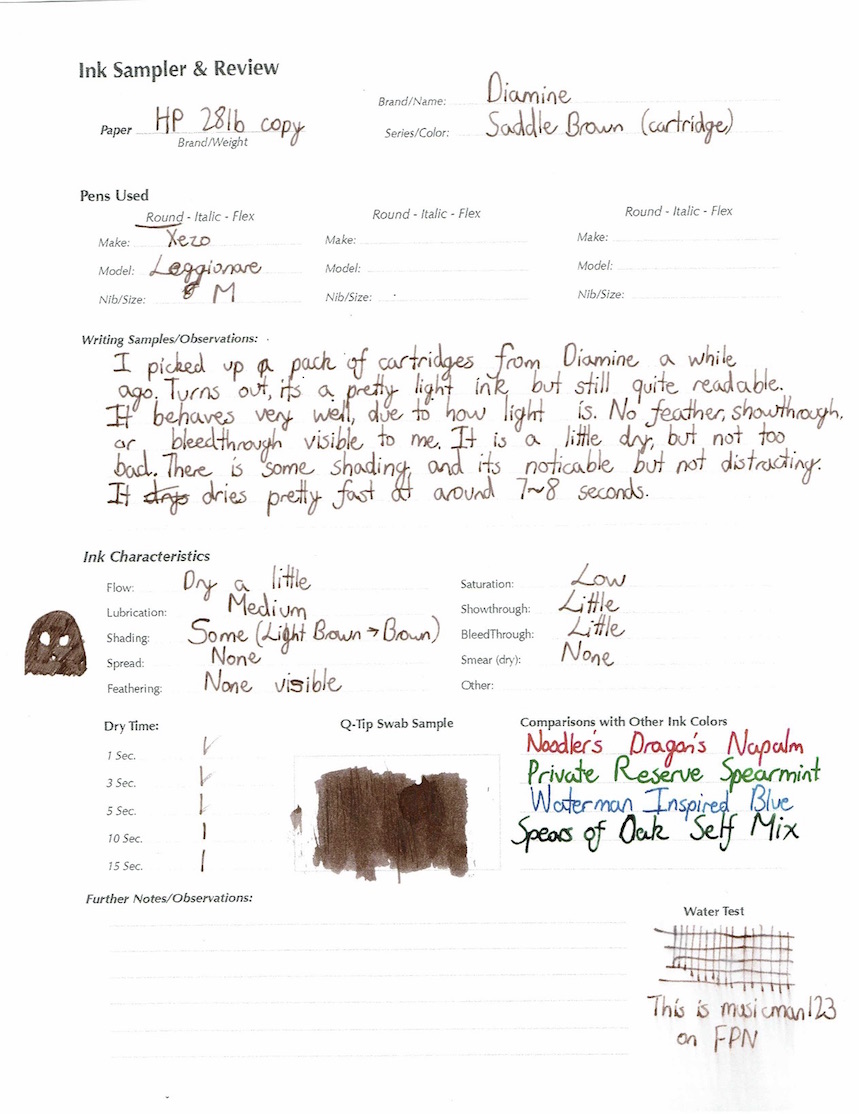 Ink Sampler & Review
Brand/Name: Diamine
Paper HP 28lb copy
Brand/Weight
Series/Color: Saddle Brown (cartridge)
Pens Used
Round - Italic - Flex
Make: Xezo
Model: Leggionare
Nib/Size: M
Round - Italic - Flex
Make:
Model:
Nib/Size:
Round - Italic - Flex
Make:
Model:
Nib/Size:
Writing Samples/Observations:
I picked up a pack of cartridges from Diamine a while
ago. Turns out, its a pretty light ink but still quite readable.
It behaves very well, due to how light is. No feather, showthrough,
or bleedthrough visible to me. It is a little dry, but not too
bad. There is some shading, and its noticable but not distracting.
It drys dries pretty fast at around 7~8 seconds.
Ink Characteristics
Flow: Dry a little
Lubrication: Medium
Shading: Some (Light Brown → Brown)
Spread: None
Feathering: None visible
Saturation: Low
Showthrough: Little
BleedThrough: Little
Smear (dry): None
Other:
Dry Time:
1 Sec.
3 Sec.
5 Sec.
10 Sec.
15 Sec.
Q-Tip Swab Sample
Comparisons with Other Ink Colors
Noodler's Dragon's Napalm
Private Reserve Spearmint
Waterman Inspired Blue
Spears of Oak Self Mix
Further Notes/Observations:
Water Test
This is musicman123
on FPN